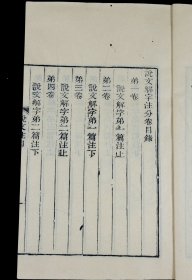 說文解字注分卷目錄
第一卷
說文解字第一篇注上
第二卷
說文解字第一篇注下
第三卷
說文解字第二篇注上
第四卷
說文解字第二篇注下